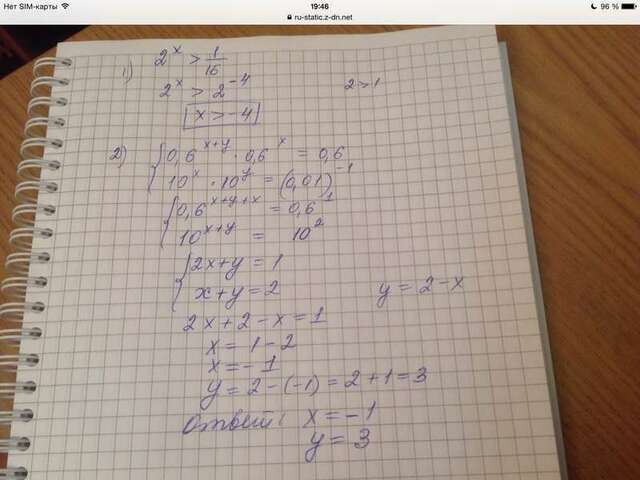 Нет SIM-карты 19:46 96 %
ru-static.z-dn.net
1) 2^x > 1/16
2^x > 2^-4 2 > 1
x > -4
2) { 0,6^x+y · 0,6^x = 0,6
10^x · 10^y = (0,01)^-1
{ 0,6^x+y+x = 0,6^1
10^x+y = 10^2
{ 2x+y = 1
x+y = 2 y = 2-x
2x+2-x = 1
x = 1-2
x = -1
y = 2-(-1) = 2+1 = 3
Ответ: x = -1
y = 3